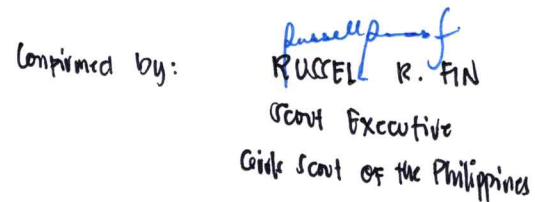 Confirmed by:
RUSSEL R. FIN
Scout Executive
Girls Scout of the Philippines